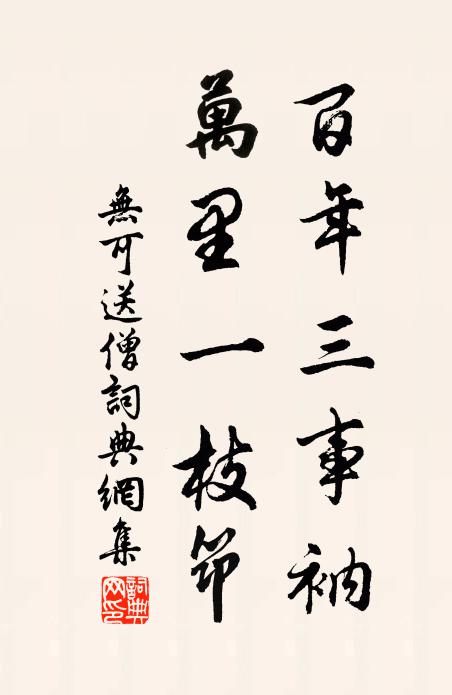 百年三事衲
萬里一枝笻
無可送僧詞典網集
詞典